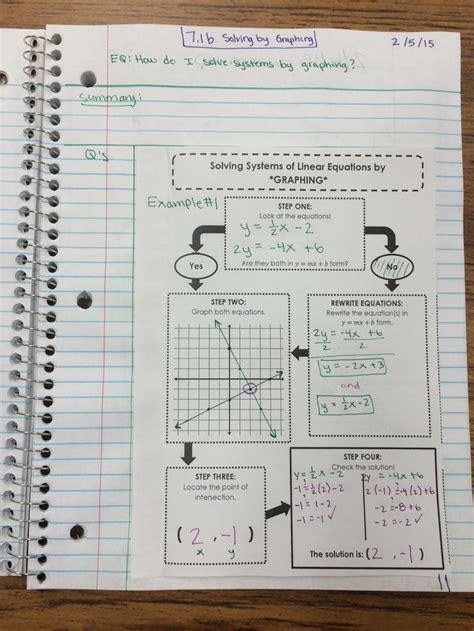 7.1b Solving by Graphing
2/5/15
EQ: How do I solve systems by graphing?
Summary:
Q's
Solving Systems of Linear Equations by
*GRAPHING*
Example #1
STEP ONE:
Look at the equations!
y = 1/2x - 2
2y = -4x + 6
Are they both in y = mx + b form?
Yes
No
STEP TWO:
Graph both equations.
REWRITE EQUATIONS:
Rewrite the equation(s) in
y = mx + b form.
2y = -4x + 6
2 2
y = -2x + 3
and
y = 1/2x - 2
STEP THREE:
Locate the point of
intersection.
(2, -1)
x y
STEP FOUR:
Check the solution!
y = 1/2x - 2
-1 = 1/2(2) - 2
-1 = 1 - 2
-1 = -1 ✓
2y = -4x + 6
2(-1) = -4(2) + 6
-2 = -8 + 6
-2 = -2 ✓
The solution is: (2, -1)
11